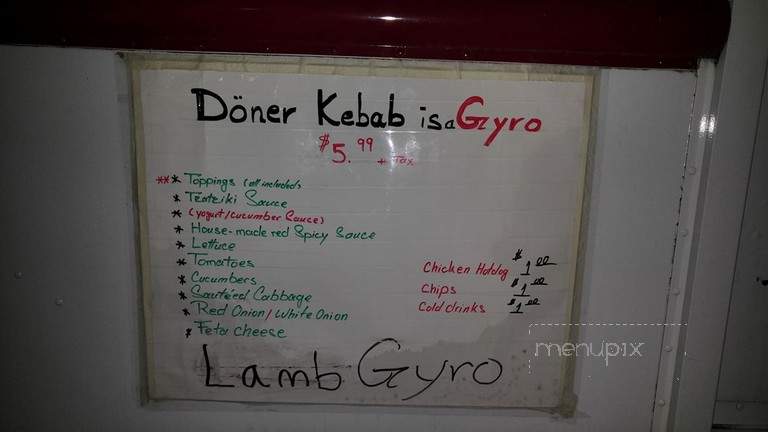 Döner Kebab is a Gyro
$5.99 + Tax
*** Toppings (all included)
* Tzatziki Sauce
* (yogurt/cucumber Sauce)
* House-made red Spicy Sauce
* Lettuce
* Tomatoes
* Cucumbers
* Sauteed Cabbage
* Red Onion/White Onion
* Feta cheese
Chicken Hotdog $1.00
Chips $1.00
Cold drinks $1.00
Lamb Gyro
menupix